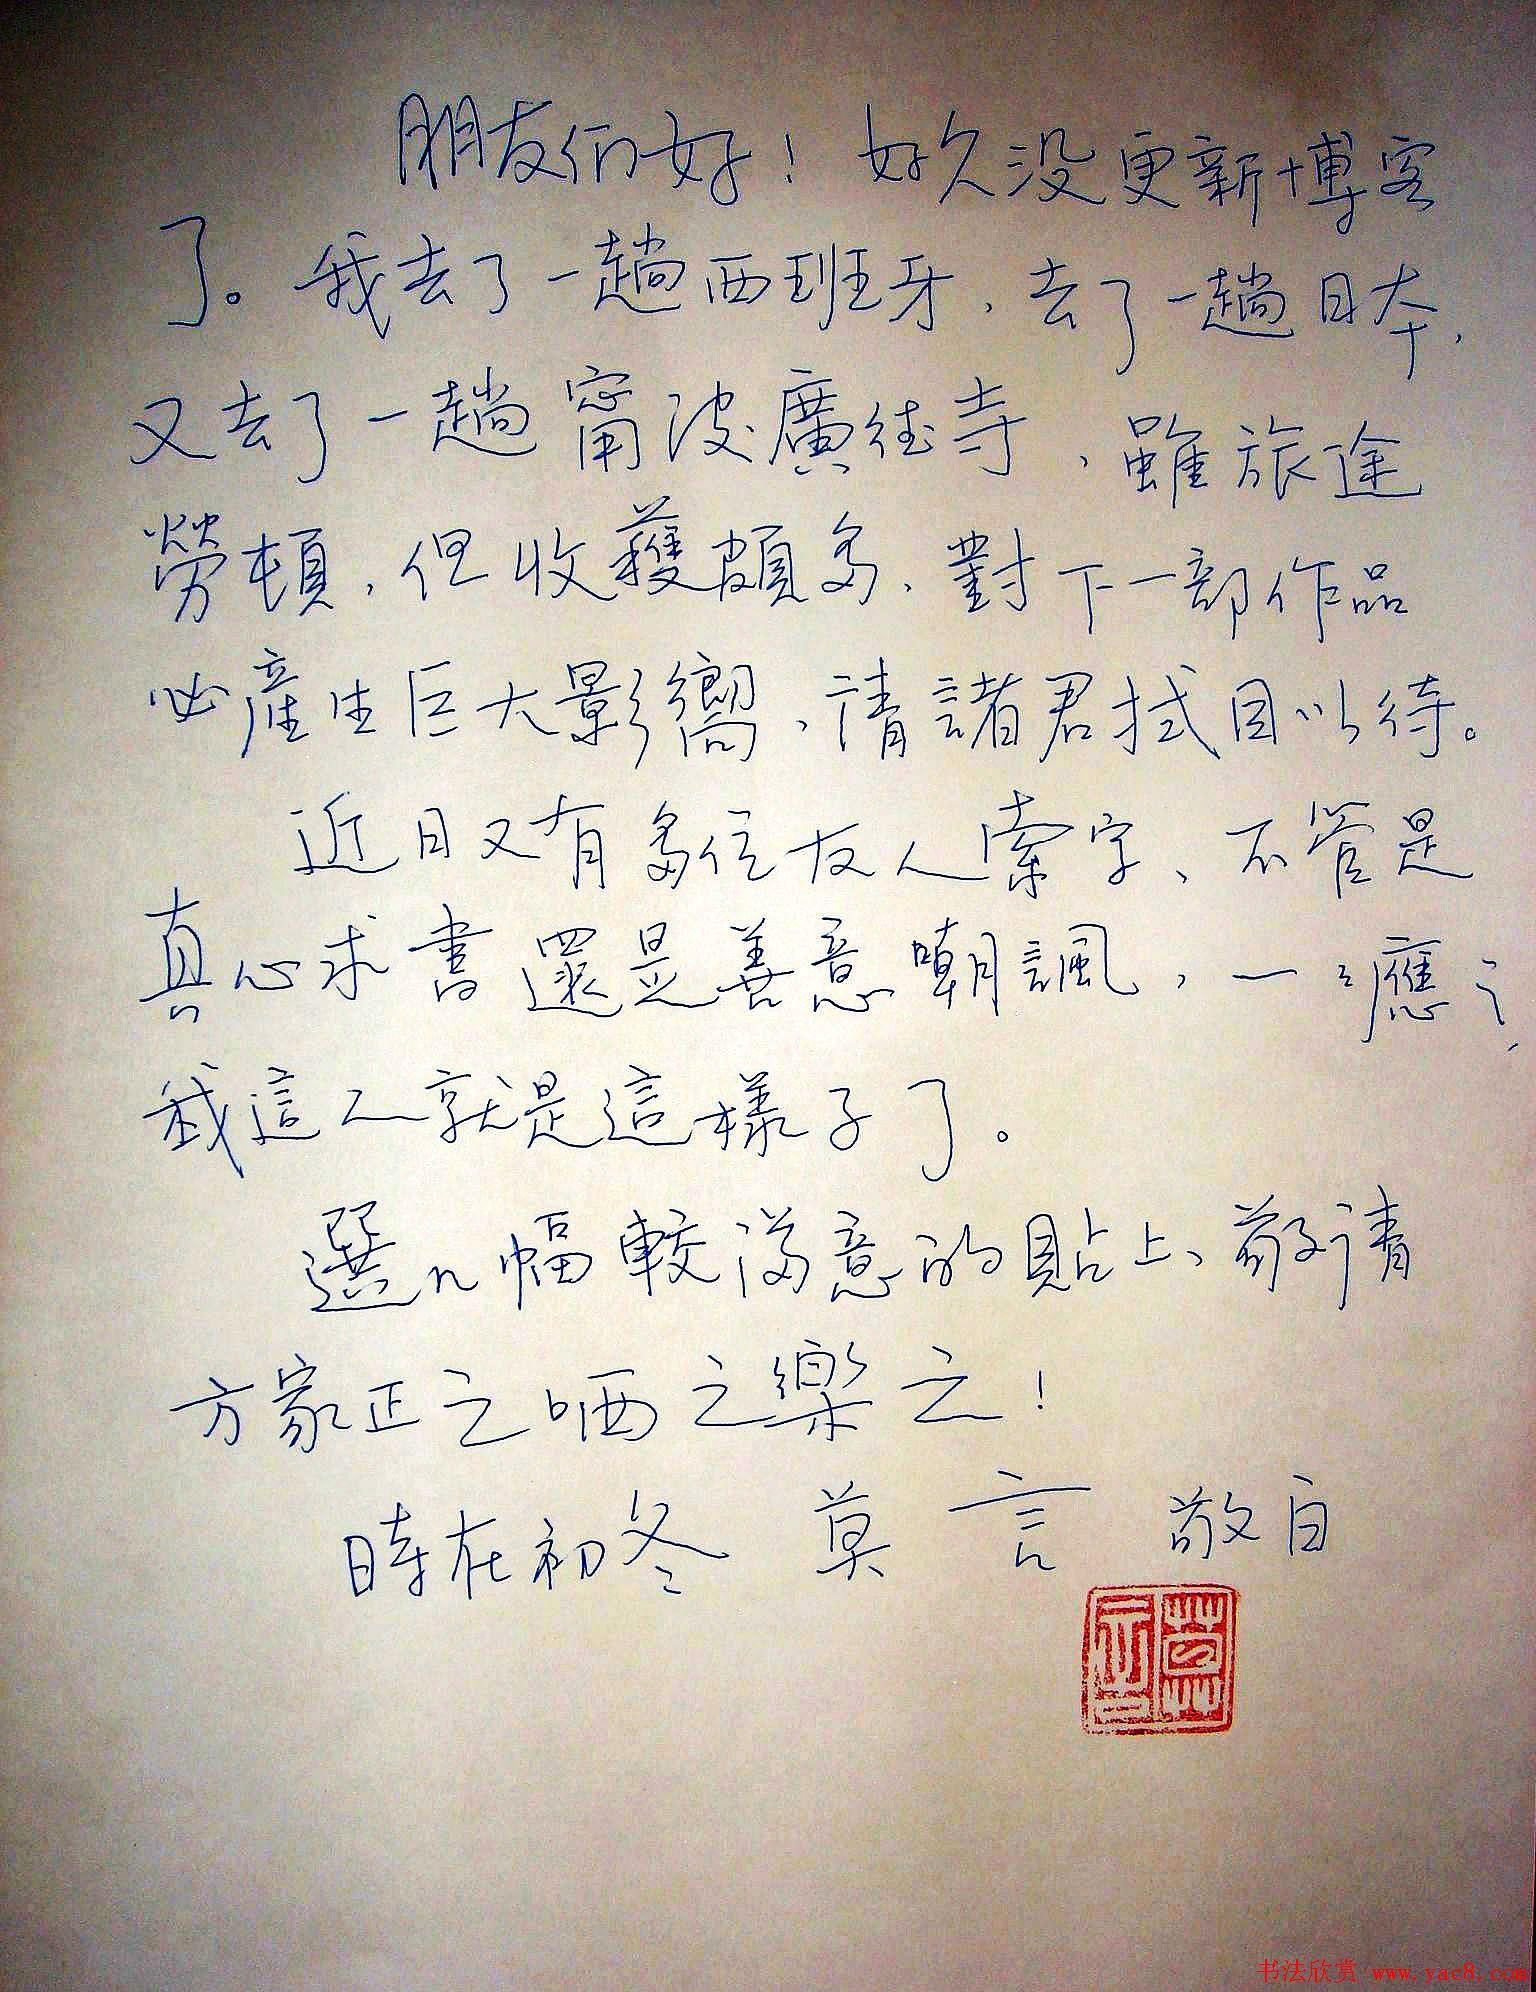 朋友们好！好久没更新博客
了。我去了一趟西班牙、去了一趟日本、
又去了一趟甯波廣德寺、雖旅途
勞頓，但收穫頗多、對下一部作品
必產生巨大影嚮、請諸君拭目以待。
近日又有多位友人索字、不管是
真心求書還是善意嘲諷，一一應之、
我這人就是這樣子了。
選几幅較滿意的貼上、敬请
方家正之哂之樂之！
時在初冬 莫言 敬白
莫言
书法欣赏 www.yac8.com